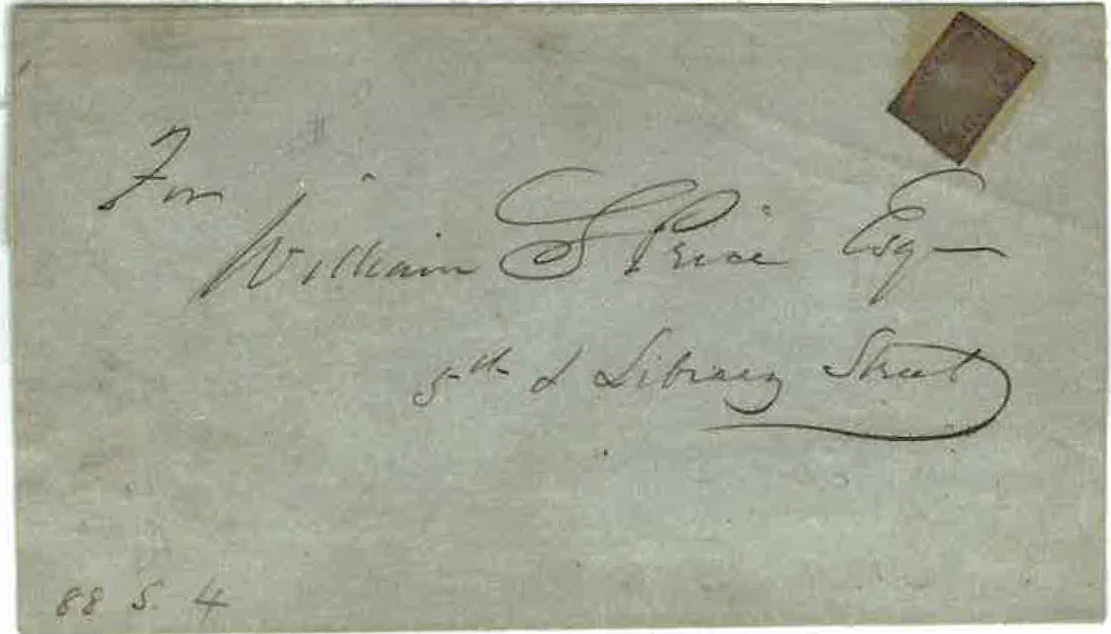 For
William S Price Esq—
5th & Library Street
88 S. 4